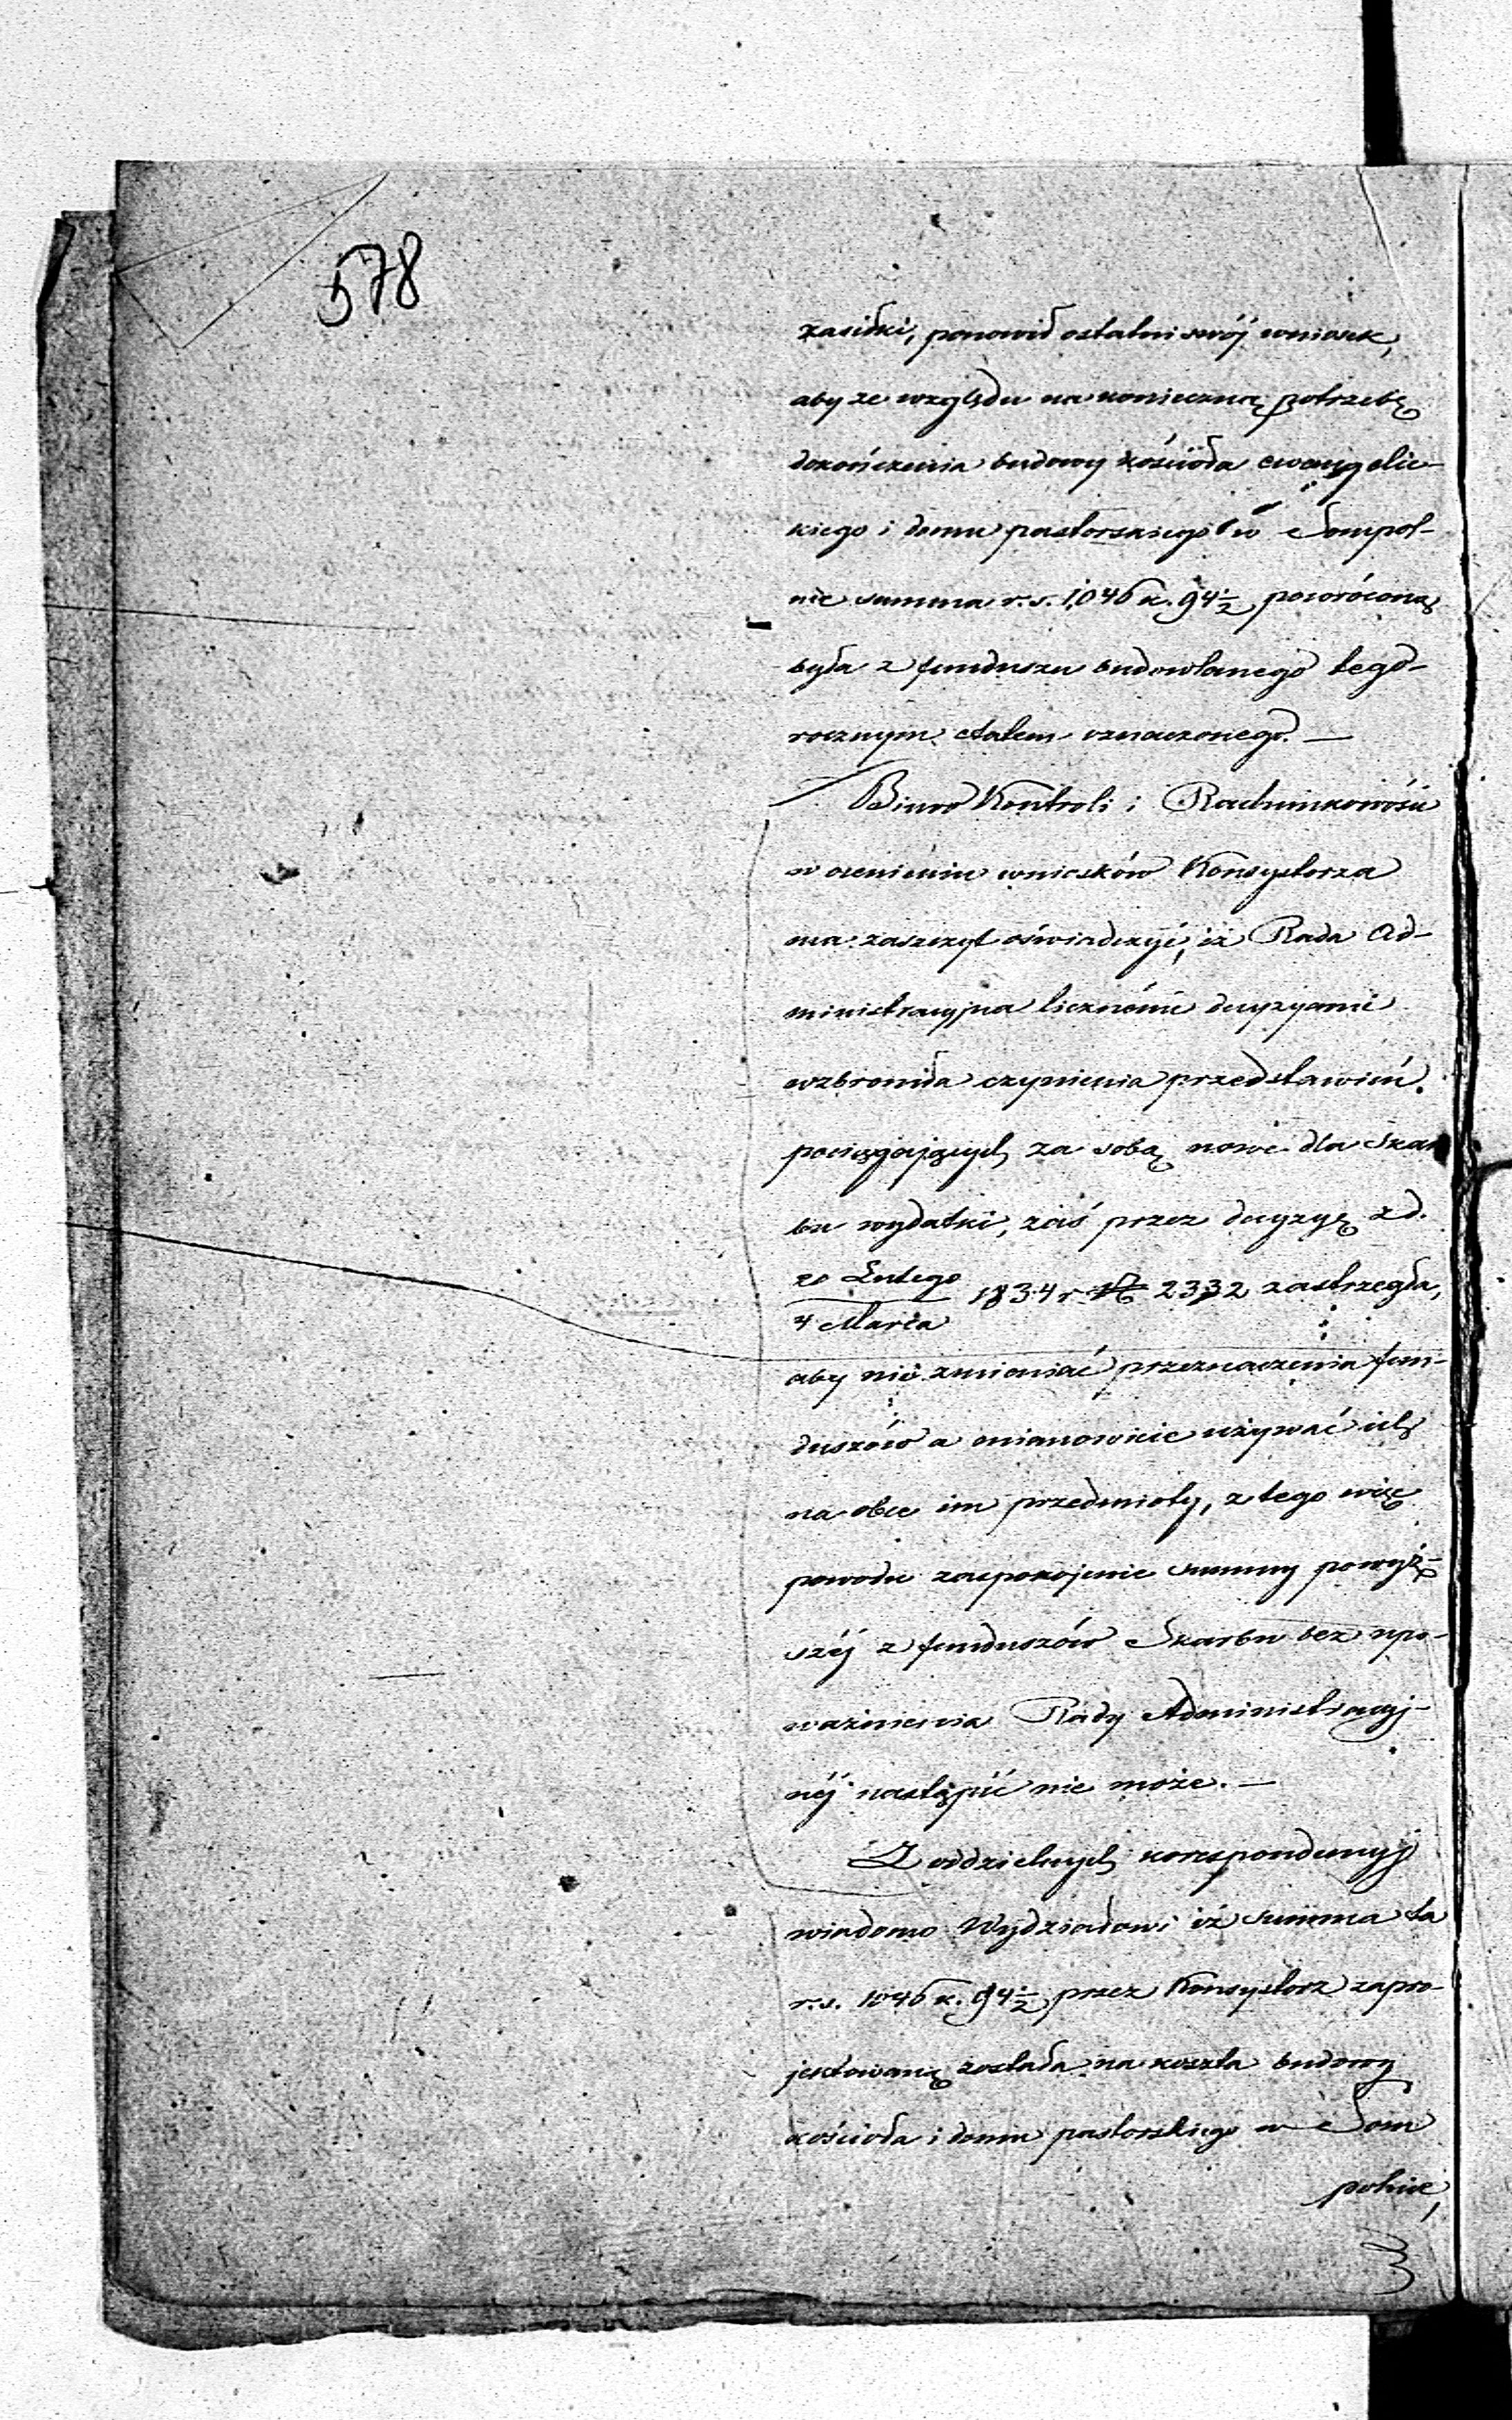 578
zasiłki, ponowił ostatni swój wniosek,
aby ze względu na konieczną potrzebę
dokończenia budowy kościoła ewangelic-
kiego i domu pastorskiego w Sompol-
nie summa r.s. 1,046 k. 94½ powróconą
była z funduszu budowlanego tego-
rocznym etatem oznaczonego. —
Biuro Kontroli i Rachunkowości
w ocenieniu wniosków Konsystorza
ma zaszczyt oświadczyć, iż Rada Ad-
ministracyjna licznémi decyzyami
wzbroniła czynienia przedstawień
pociągających za sobą nowe dla Skar
bu wydatki, zaś przez decyzyę z d.
20 Lutego
4 Marca 1834 r. № 2332 zastrzegła,
aby nie zmieniać przeznaczenia fun-
duszów a mianowicie używać ich
na obce im przedmioty, z tego więc
powodu zaspokojenie summy powyż-
széj z funduszów Skarbu bez upo-
ważnienia Rady Administracyj-
néj nastąpić nie może. —
Z oddzielnych korespondencyj
wiadomo Wydziałowi iż summa ta
r.s. 1046 k. 94½ przez Konsystorz zapro-
jektowaną została na koszta budowy
kościoła i domu pastorskiego w Som
polnie,